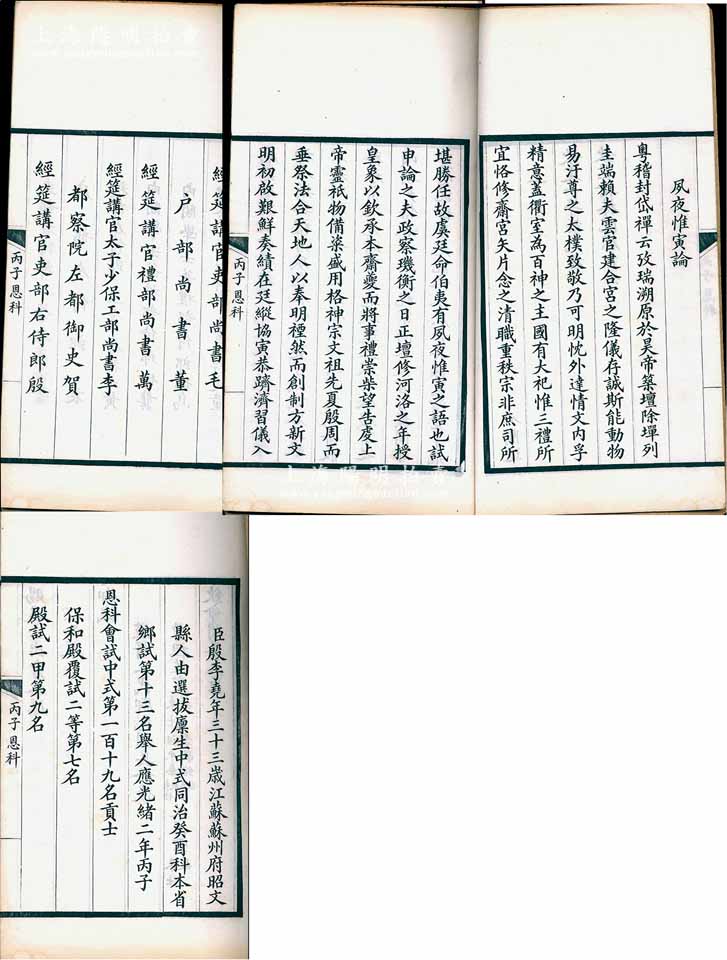 夙夜惟寅論
粵稽封岱禪云攷瑞溯原於昊帝築壇除墠列
圭端賴夫雲官建合宮之隆儀存誠斯能動物
易汙尊之太樸致敬乃可明忱外達情文內孚
精意蓋衢室為百神之主國有大祀惟三禮所
宜恪修齋宮矢片念之清職重秩宗非庶司所
堪勝任故虞廷命伯夷有夙夜惟寅之語也試
申論之夫政察璣衡之日正壇修河洛之年授
皇象以欽承本齋夔而將事禮崇柴望告虔上
帝靈祇物備粢盛用格神宗文祖先夏殷周而
垂祭法合天地人以奉明禋然而創制方新文
明初啟艱鮮奏績在廷縱協寅恭躋濟習儀入
丙子恩科
經筵講官吏部尚書毛
戶部尚書董
經筵講官禮部尚書萬
經筵講官太子少保工部尚書李
都察院左都御史賀
經筵講官吏部右侍郎殷
丙子恩科
臣殷李堯年三十三歲江蘇蘇州府昭文
縣人由選拔廩生中式同治癸酉科本省
鄉試第十三名舉人應光緒二年丙子
恩科會試中式第一百十九名貢士
保和殿覆試二等第七名
殿試二甲第九名
丙子恩科
上海陽明拍賣
上海陽明拍賣